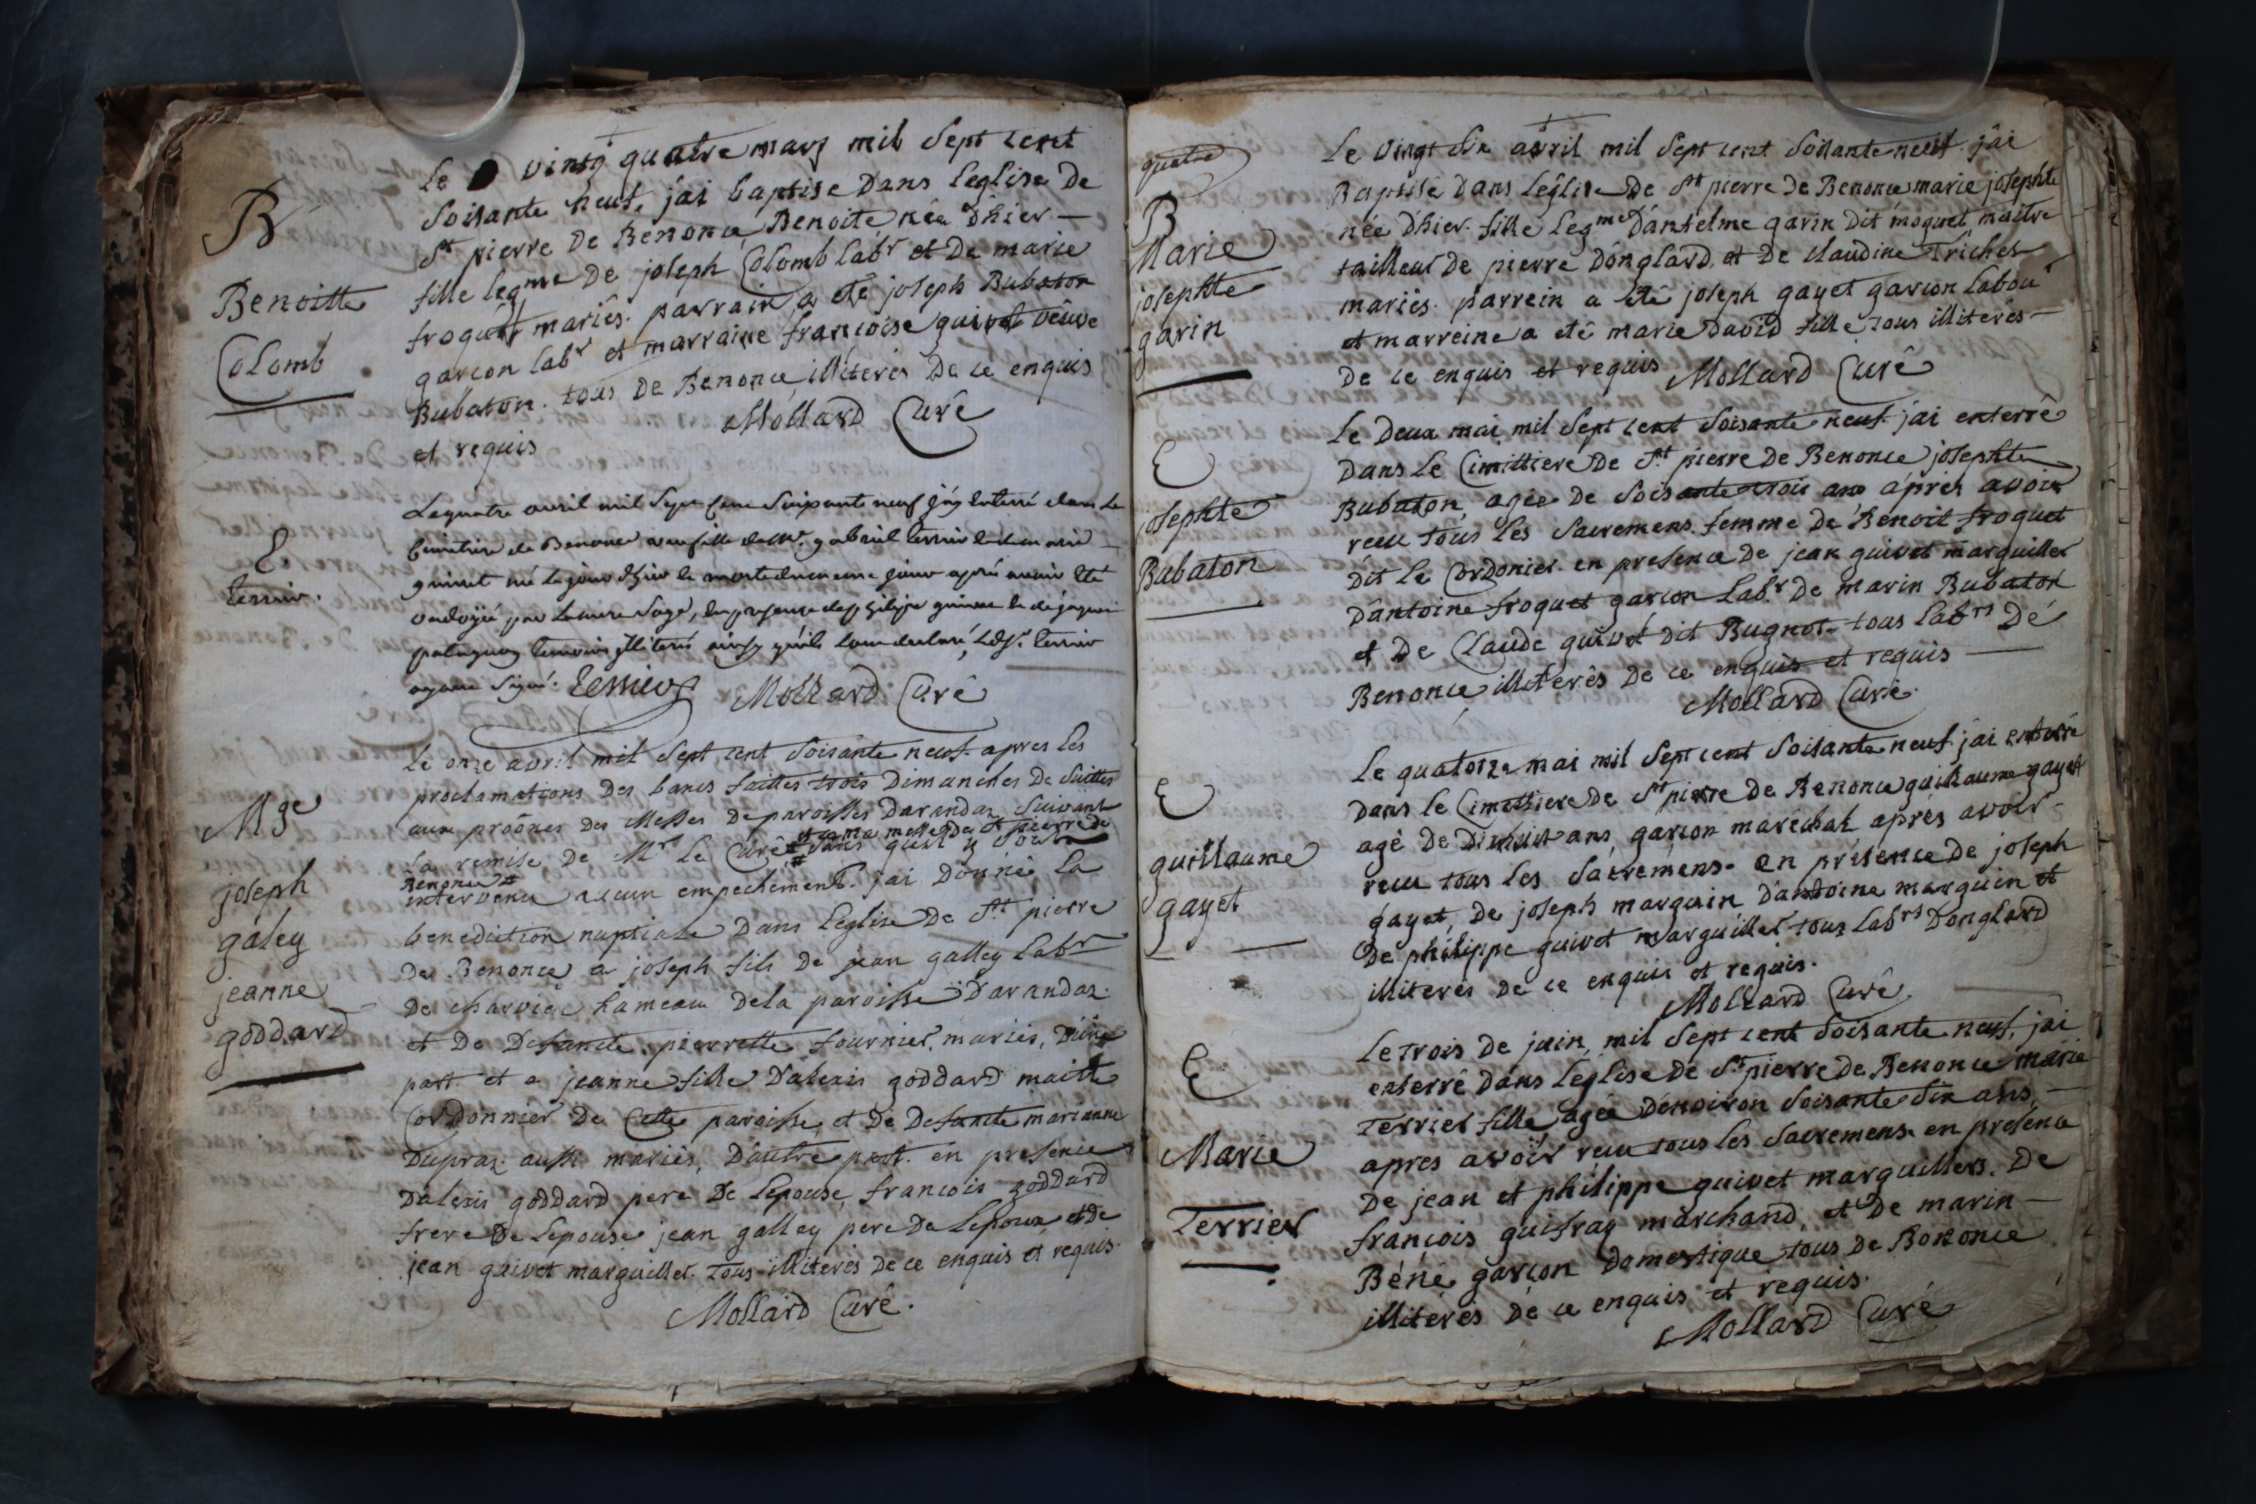 B
Benoitte
Colomb
Le vintg quatre mars mil Sept cent
Soisante neuf, j'ai baptisé Dans l'eglise De
St pierre De Benonce Benoite née D'hier —
fille legme De joseph Colomb labr et De marie
froquet mariés. parrain a été joseph Bubaton
garcon labr et marraine francoise guivet veuve
Bubaton. tous De Benonce illiterés De ce enquis
et requis Mollard Curé
E
terrier.
Le quatre avril mil Sept Cent Soixante neuf j'ay Enterré dans Le
Cimetiere de Benonce un fille de Mr. gabriel terrier et de marie
guinet né Le jour d'hier le morte du meme jour aprés avoir Eté
ondoyée par La mere Sage, En presence de philipe
temoins illiterés ainsy qu'ils l'ont declaré, Le Sr. terrier
ayant Signé. Terrier Mollard Curé
Mge
joseph
galey
jeanne
goddard
Le onze avril mil Sept cent Soisante neuf. apres les
proclamations Des bancs faittes trois Dimanches De Suittes
aux proônes des Messes De paroisses D'arandaz Suivant
La remise De Mr Le Curé # Sans quil y Soit
et a ma messe De St pierre De
Benonce #
intervenu aucun empechement. j'ai Donné La
benediction nuptiale Dans L'eglise De St pierre
De Benonce a joseph fils De jean galley Labr
De charvieu hameau De la paroisse D'arandaz.
et De Defuncte pierrette fournier, mariés, D'une
part. et a jeanne fille D'alexis goddard maitre
Cordonnier De Cette paroisse, et De Defuncte marianne
Dupraz aussi mariés, D'autre part. en presence
D'alexis goddard pere De L'epouse, francois goddard
frere De L'epouse jean galley pere De L'epoux et De
jean guivet marguiller. Tous illiterés De ce enquis et requis.
Mollard Curé.
quatre
B
Marie
josephte
garin
Le vingt Six avril mil Sept cent Soisante neuf. j'ai
Baptisé Dans L'eglise De St pierre De Benonce marie josephte
née D'hier. fille Legme D'antelme garin Dit moquet maitre
tailleur De pierre D'onglard, et De claudine Trichet
mariés. parrein a été joseph gayet garcon labour
et marreine a été marie David fille tous illiterés —
De ce enquis et requis Mollard Curé
E
josephte
Bubaton
Le Deux mai mil Sept cent Soisante neuf. j'ai enterré
Dans Le Cimittiere De St pierre De Benonce josephte
Bubaton, agée De Soisante trois ans aprés avoir
reçu Tous Les Sacremens. femme De Benoit froquet
Dit Le Cordonier. en presence De jean guivet marguiller
D'antoine froquet garcon Labr De marin Bubaton
et De Claude guivet Dit Bugnot. tous Labrs De
Benonce illiterés De ce enquis et requis —
Mollard Curé.
E
guillaume
gayet
Le quatorze mai mil Sept cent Soisante neuf. j'ai enterré
Dans Le Cimettiere De St pierre De Benonce guillaume gayet
agé De Dixhuit ans, garcon maréchal aprés avoir
reçu tous Les Sacremens. en présence De joseph
gayet, De joseph marquin D'antoine marquin et
De philippe guivet marguiller tous Labrs D'onglard
illiterés De ce enquis et requis.
Mollard Curé
E
Marie
Terrier
Le Trois De juin mil Sept cent Soisante neuf, j'ai
enterré Dans L'église De St pierre De Benonce marie
Terrier fille agée D'environ Soisante Six ans, —
apres avoir reçu tous Les Sacremens en présence
De jean et philippe guivet marguillers. De
françois guifray marchand, et De marin —
Béné garçon Domestique tous De Bononce
illiterés De ce enquis et requis.
Mollard Curé